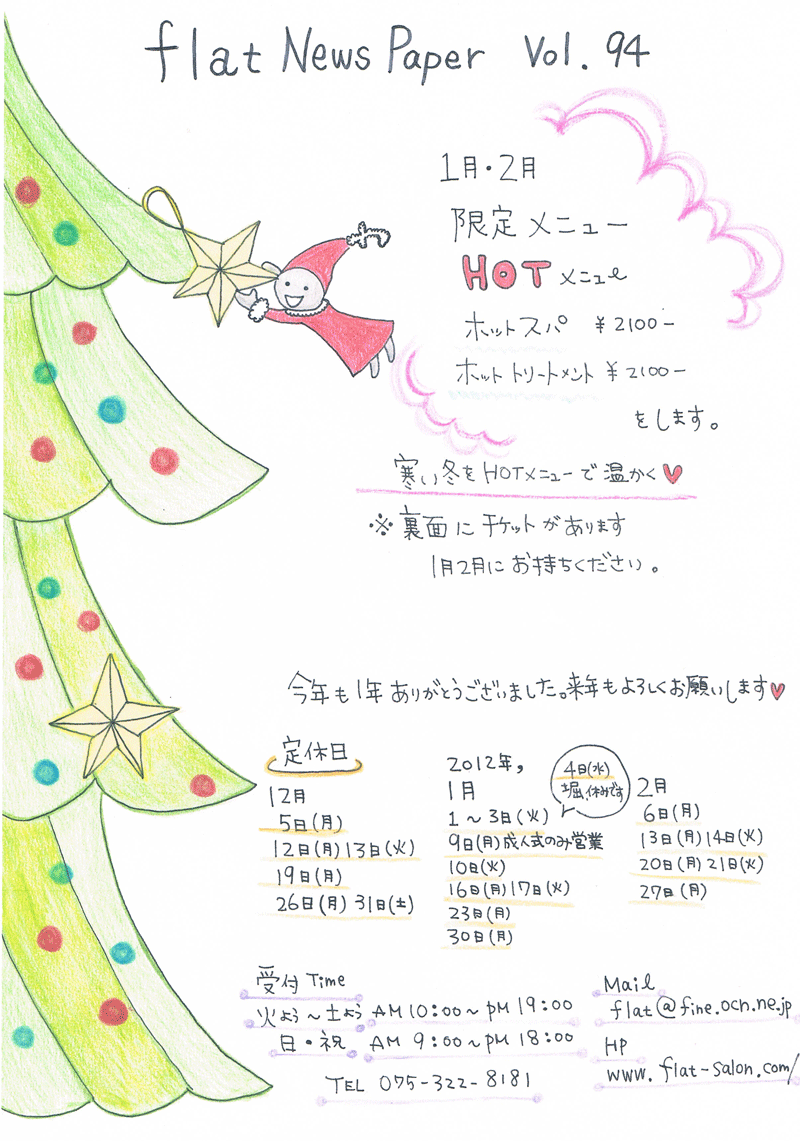 flat News Paper Vol. 94
1月・2月
限定メニュー
HOTメニュー
ホットスパ ¥2100-
ホットトリートメント ¥2100-
をします。
寒い冬をHOTメニューで温かく♥
※裏面にチケットがあります
1月2月にお持ちください。
今年も1年ありがとうございました。来年もよろしくお願いします♥
定休日
12月
5日(月)
12日(月)13日(火)
19日(月)
26日(月)31日(土)
2012年,
1月
1～3日(火)
4日(水)
堀、休みです
9日(月)成人式のみ営業
10日(火)
16日(月)17日(火)
23日(月)
30日(月)
2月
6日(月)
13日(月)14日(火)
20日(月)21日(火)
27日(月)
受付Time
火よう～土よう AM10:00～PM19:00
日・祝 AM 9:00～PM18:00
TEL 075-322-8181
Mail
flat@fine.ocn.ne.jp
HP
www.flat-salon.com/